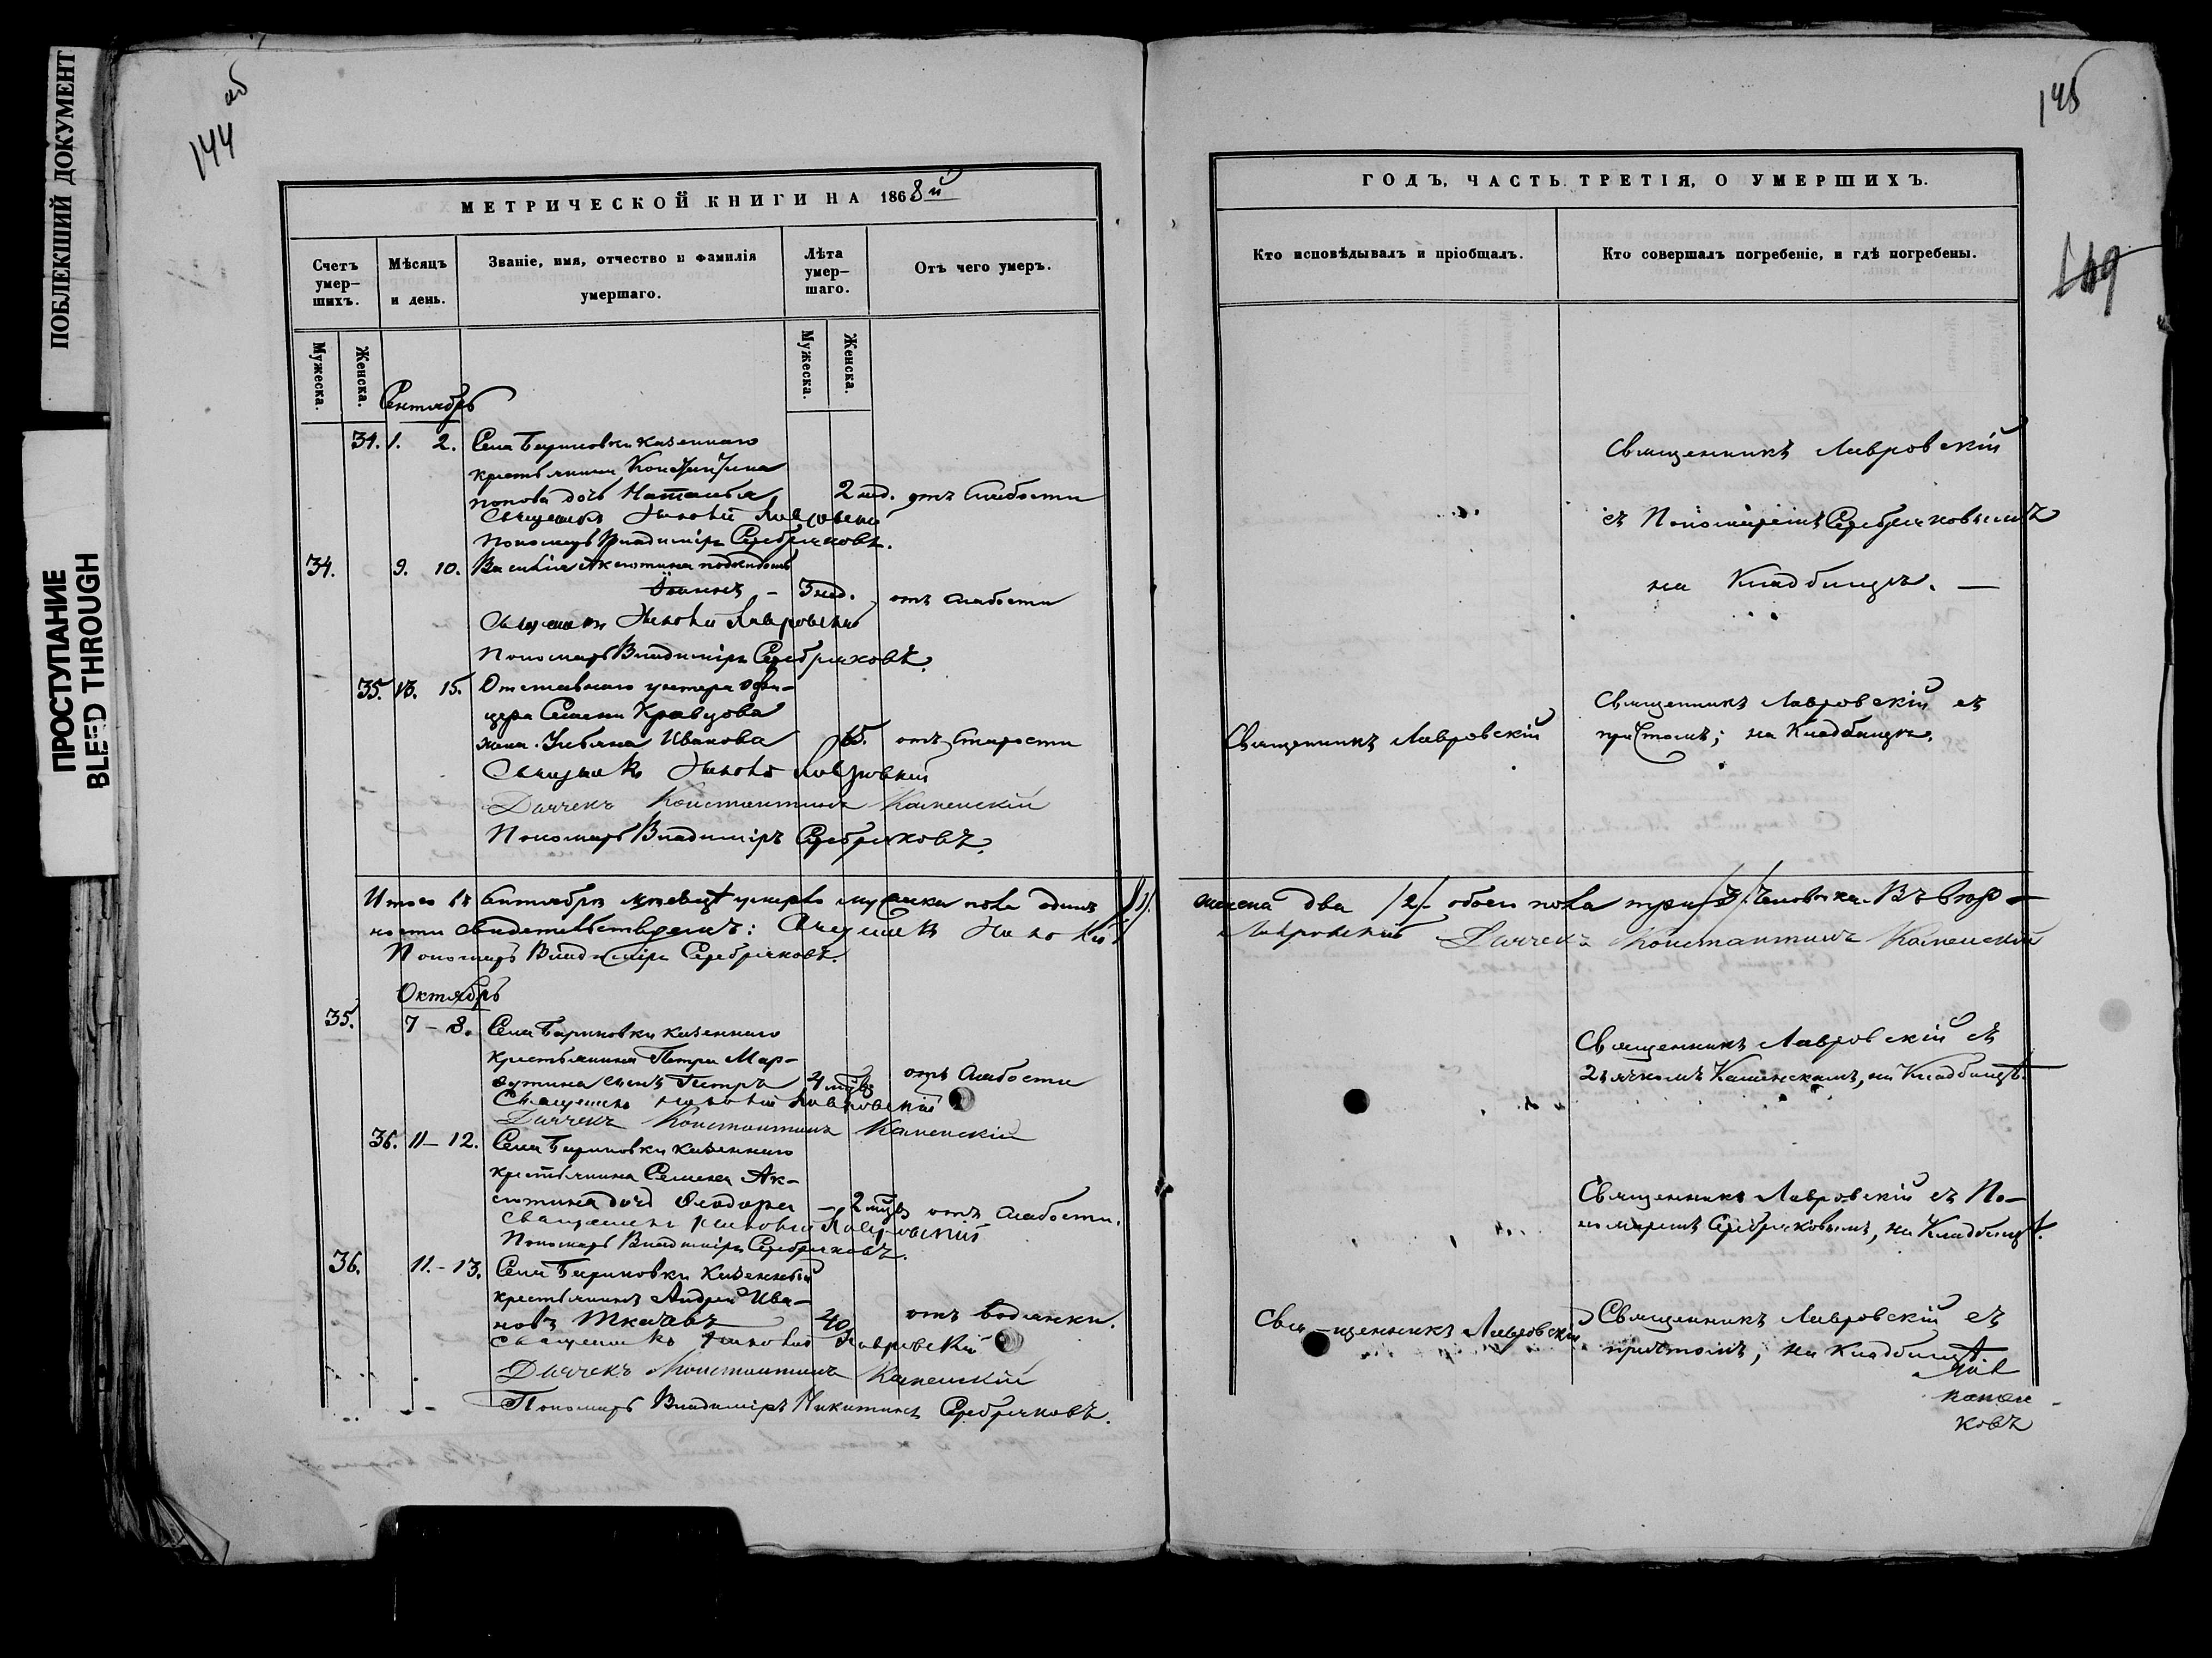 ПОБЛЕКШИЙ ДОКУМЕНТ
ПРОСТУПАНИЕ
BLEED THROUGH
144 об
МЕТРИЧЕСКОЙ КНИГИ НА 1868й
Счетъ умер-шихъ.
Мѣсяцъ и день.
Званіе, имя, отчество и фамилія умершаго.
Лѣта умер-шаго.
Отъ чего умеръ.
Мужеска.
Женска.
Мужеска.
Женска.
Сентябрь
34. 1. 2. Села Бариновки казеннаго
крестьянина Константина
Попова дочь Наталья 2 нед. отъ слабости
Священникъ Лавровскій
Пономарь Владиміръ Серебряковъ.
34. 9. 10. Василія Аксютина подкидышъ
Іоаннъ – 3 нед. отъ слабости
Священникъ Лавровскій
Пономарь Владиміръ Серебряковъ.
35. 13. 15. Отставнаго унтеръ офи-
цера Семена Кравцова
жена Ульяна Иванова 65. отъ старости
Священникъ Лавровскій
Дьячекъ Константинъ Каменскій
Пономарь Владиміръ Серебряковъ.
Итого въ Сентябрѣ мѣсяцѣ умерло мужеска пола одинъ /1/.
ности свидетельствуемъ: Священникъ
Пономарь Владиміръ Серебряковъ.
Октябрь
35. 7 – 8. Села Бариновки казеннаго
крестьянина Петра Мар-
сынъ Петръ 4 отъ слабости
Священникъ Лавровскій
Дьячекъ Константинъ Каменскій
36. 11 – 12. Села Бариновки казеннаго
крестьянина Семена Ак-
сютина дочь Ѳеодора – 2 отъ слабости.
Священникъ Лавровскій
Пономарь Владиміръ Серебряковъ.
36. 11. – 13. Села Бариновки казенный
крестьянинъ Андрей Ива-
новъ Ткачевъ 40 отъ водянки.
Священникъ Лавровскій
Дьячекъ Константинъ Каменскій
Пономарь Владиміръ Никитинъ Серебряковъ.
145
149
ГОДЪ, ЧАСТЬ ТРЕТІЯ, О УМЕРШИХЪ.
Кто исповѣдывалъ и пріобщалъ.
Кто совершалъ погребеніе, и гдѣ погребены.
Священникъ Лавровскій
съ Пономаремъ Серебряковымъ
на Кладбищѣ. —
Священникъ Лавровскій
Священникъ Лавровскій съ
причтомъ; на Кладбищѣ.
женска два /2/. обоего пола три /3/. человѣка. Въ вѣр-
Лавровскій Дьячекъ Константинъ Каменскій
Священникъ Лавровскій съ
Дьячкомъ Каменскимъ, на Кладбищѣ.
Священникъ Лавровскій съ По-
номаремъ Серебряковымъ, на Кладбищѣ.
Священникъ Лавровскій
Священникъ Лавровскій съ
причтомъ; на кладбищѣ